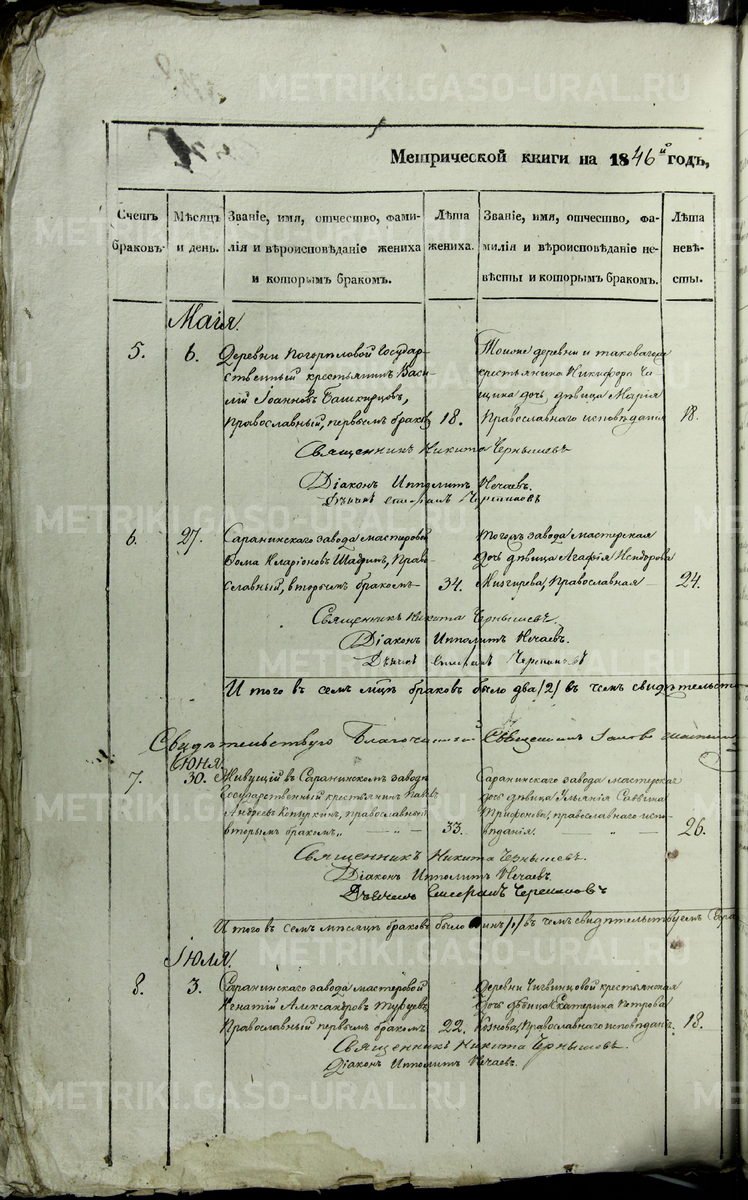 METRIKI.GASO-URAL.RU
Метрической книги на 1846й годъ,
Счетъ браковъ.
Мѣсяцъ и день.
Званіе, имя, отчество, фами-
лія и вѣроисповѣданіе жениха
и которымъ бракомъ.
Лѣта жениха.
Званіе, имя, отчество, фа-
милія и вѣроисповѣданіе не-
вѣсты и которымъ бракомъ.
Лѣта невѣ-
сты.
Маія.
5. 6. Деревни Погорѣловой Государ-
ственный крестьянинъ Васи-
лій Іоанновъ Башкирцовъ,
Православный, первымъ бракомъ 18.
Тойже деревни и таковагоже
крестьянина Никифора
дочь, дѣвица Марія
Православнаго исповѣданія 18.
Священникъ Никита Чернышевъ
Діаконъ Ипполитъ Нечаевъ.
Дьячекъ
6. 27. Саранинскаго завода мастеровой
Ѳома Иларіоновъ Православный, вторымъ бракомъ 34.
Тогожъ завода мастерская
дочь дѣвица Агафія
Православная 24.
Священникъ Никита Чернышевъ.
Діаконъ Ипполитъ Нечаевъ.
Дьячекъ
И того въ семъ мцѣ браковъ было два /2/ въ чемъ свидѣтельст
Свидѣтельствую Благочинный Священникъ
Іюня
7. 30. Живущій въ Саранинскомъ заводѣ
Государственный крестьянинъ Павелъ
Андреевъ Копыркинъ, православный
вторымъ бракомъ, 33.
Саранинскаго завода мастерская
дочь дѣвица Ульянія Саввина
Трифонова, православнаго испо-
вѣданія. 26.
Священникъ Никита Чернышевъ.
Діаконъ Ипполитъ Нечаевъ
Дьячекъ
И того въ семъ мѣсяцѣ браковъ было одинъ /1/ въ чемъ свидѣтельствуемъ
Іюля.
8. 3. Саранинскаго завода мастеровой
Игнатій Александровъ
Православный первымъ бракомъ 22.
Деревни крестьянская
дочь дѣвица Екатерина Петрова
Православнаго исповѣдан. 18.
Священникъ Никита Чернышевъ.
Діаконъ Ипполитъ Нечаевъ.